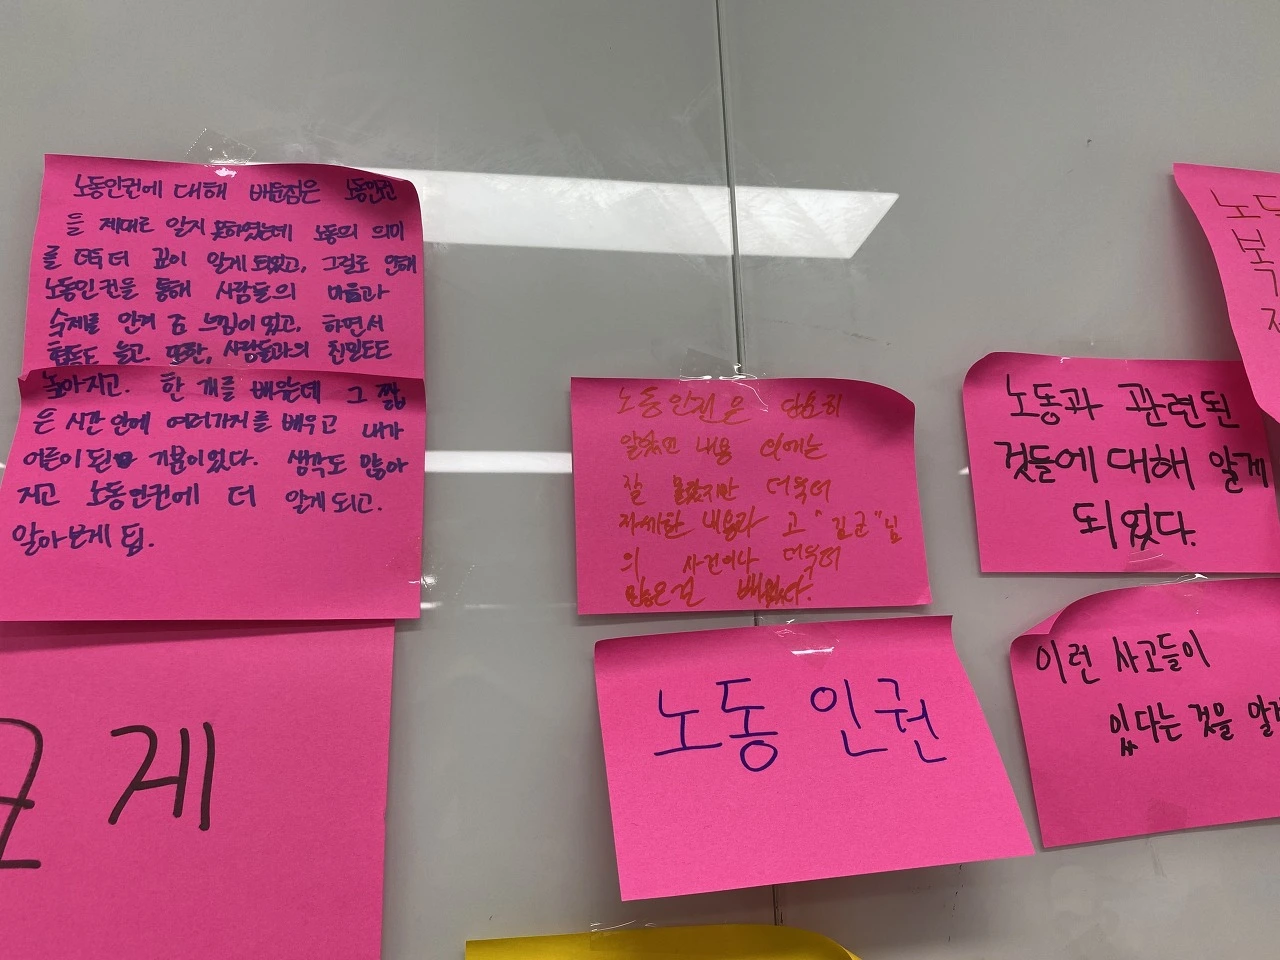 노동인권에 대해 배운점은 노동인권
을 제대로 알지 못하였는데 노동의 의미
를 더욱 더 깊이 알게 되었고, 그걸로 인해
노동인권을 통해 사람들의 마음과
숙제를 안겨 준 느낌이 있고, 하면서
협동도 늘고. 또한, 사람들과의 친밀도도
높아지고. 한 개를 배웠는데 그 짧
은 시간 안에 여러가지를 배우고 내가
어른이 된 기분이었다. 생각도 많아
지고 노동인권에 더 알게 되고.
알아보게 됨.
게
노동인권은 단순히
알았던 내용 외에는
잘 몰랐지만 더욱더
자세한 내용과 고 "김군"님
의 사건이나 더욱더
많은걸 배웠다.
노동 인권
노동과 관련된
것들에 대해 알게
되었다.
이런 사고들이
있다는 것을 알게